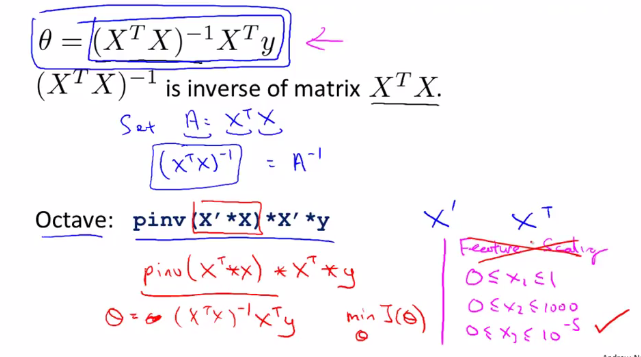 θ = (XᵀX)⁻¹Xᵀy
(XᵀX)⁻¹ is inverse of matrix XᵀX.
Set A = XᵀX
(XᵀX)⁻¹ = A⁻¹
Octave: pinv(X'*X)*X'*y
pinv(Xᵀ*X) * Xᵀ * y
θ = (XᵀX)⁻¹Xᵀy
min J(θ)
θ
X' Xᵀ
Feature Scaling
0 ≤ x₁ ≤ 1
0 ≤ x₂ ≤ 1000
0 ≤ x₃ ≤ 10⁻⁵